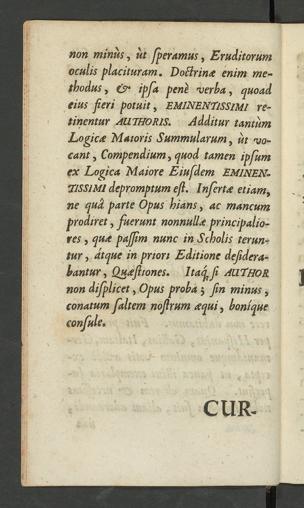 non minùs, ùt speramus, Eruditorum
oculis placituram. Doctrinæ enim me-
thodus, & ipsa penè verba, quoad
eius fieri potuit, EMINENTISSIMI re-
tinentur AUTHORIS. Additur tantùm
Logicæ Maioris Summularum, ùt vo-
cant, Compendium, quod tamen ipsum
ex Logica Maiore Eiusdem EMINEN-
TISSIMI depromptum est. Insertæ etiam,
ne quâ parte Opus hians, ac mancum
prodiret, fuerunt nonnullæ principalio-
res, quæ passim nunc in Scholis terun-
tur, átque in priori Editione desidera-
bantur, Quæstiones. Itaq́; si AUTHOR
non displicet, Opus proba; sin minus,
conatum saltem nostrum æqui, boníque
consule.
CUR-